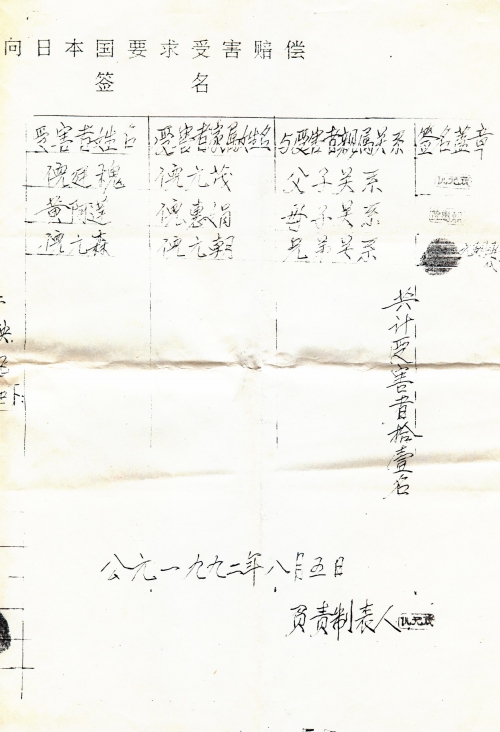 向日本国要求受害赔偿
签 名
受害者姓名 受害者家属姓名 与受害者亲属关系 签名盖章
倪廷魏 倪元茂 父子关系
黄阿莲 倪惠娟 母子关系
倪元森 倪元朝 兄弟关系
共计受害者拾壹名
公元一九九二年八月五日
负责制表人